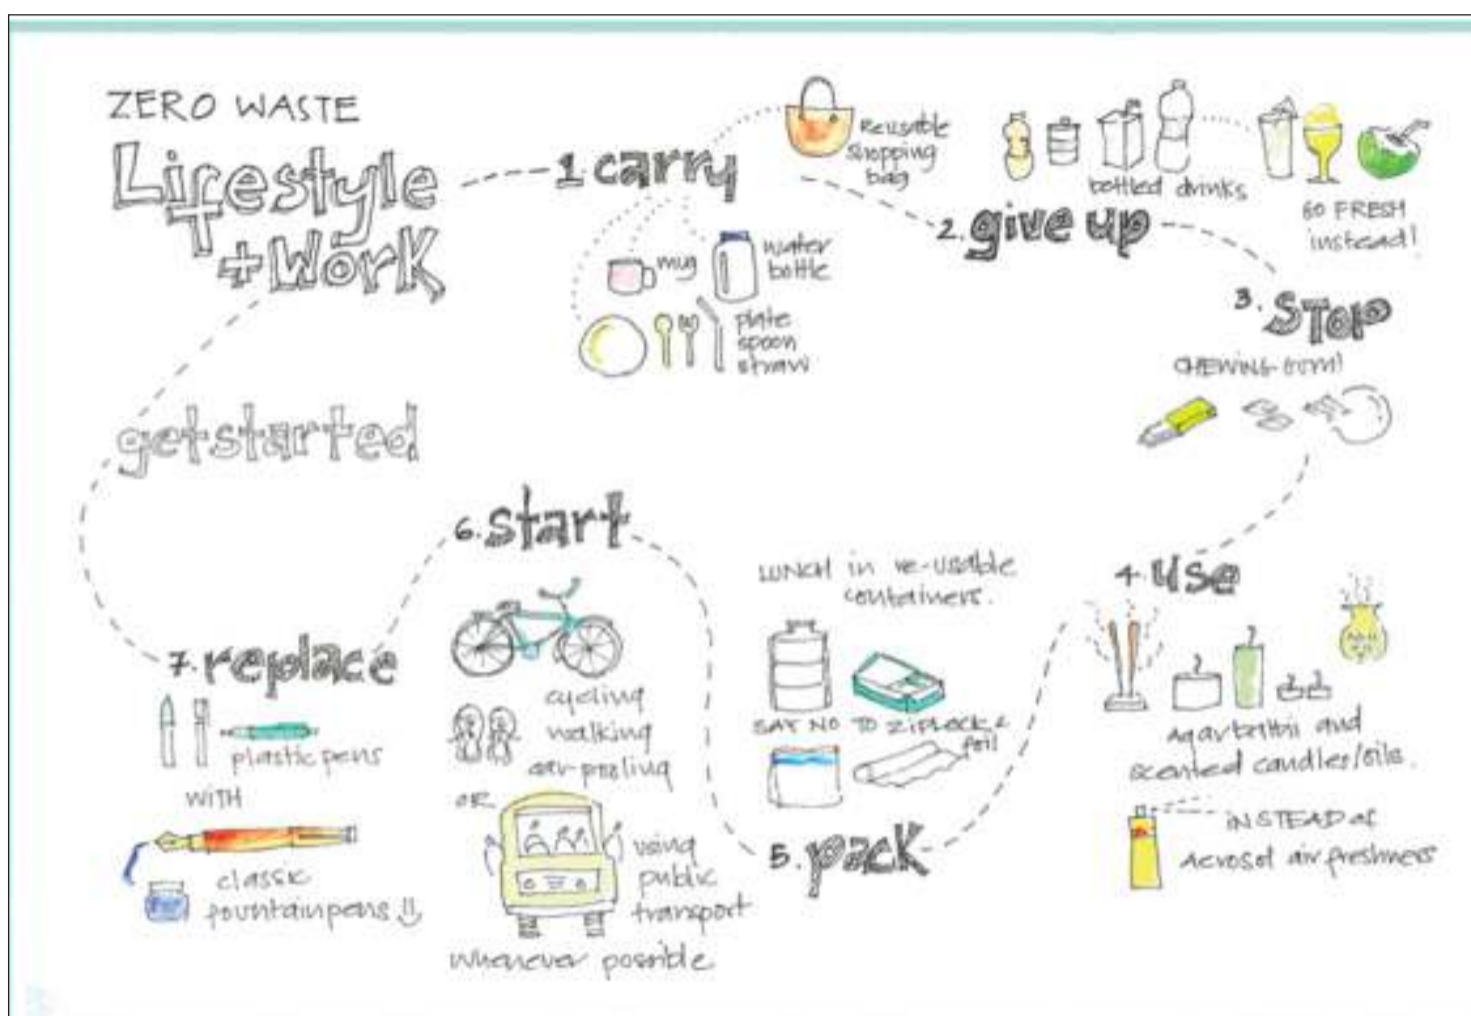 ZERO WASTE
Lifestyle
+ Work
1. carry
Reusable
shopping
bag
mug
water
bottle
plate
spoon
straw
2. give up
bottled drinks
GO FRESH
instead!
3. STOP
CHEWING GUM!
4. use
Agarbattii and
scented candles/oils.
INSTEAD of
Aerosol air freshners
5. pack
LUNCH in re-usable
containers.
SAY NO TO ZIPLOCK &
foil
6. start
cycling
walking
car-pooling
OR
using
public
transport
whenever possible
7. replace
plastic pens
WITH
classic
fountain pens
get started